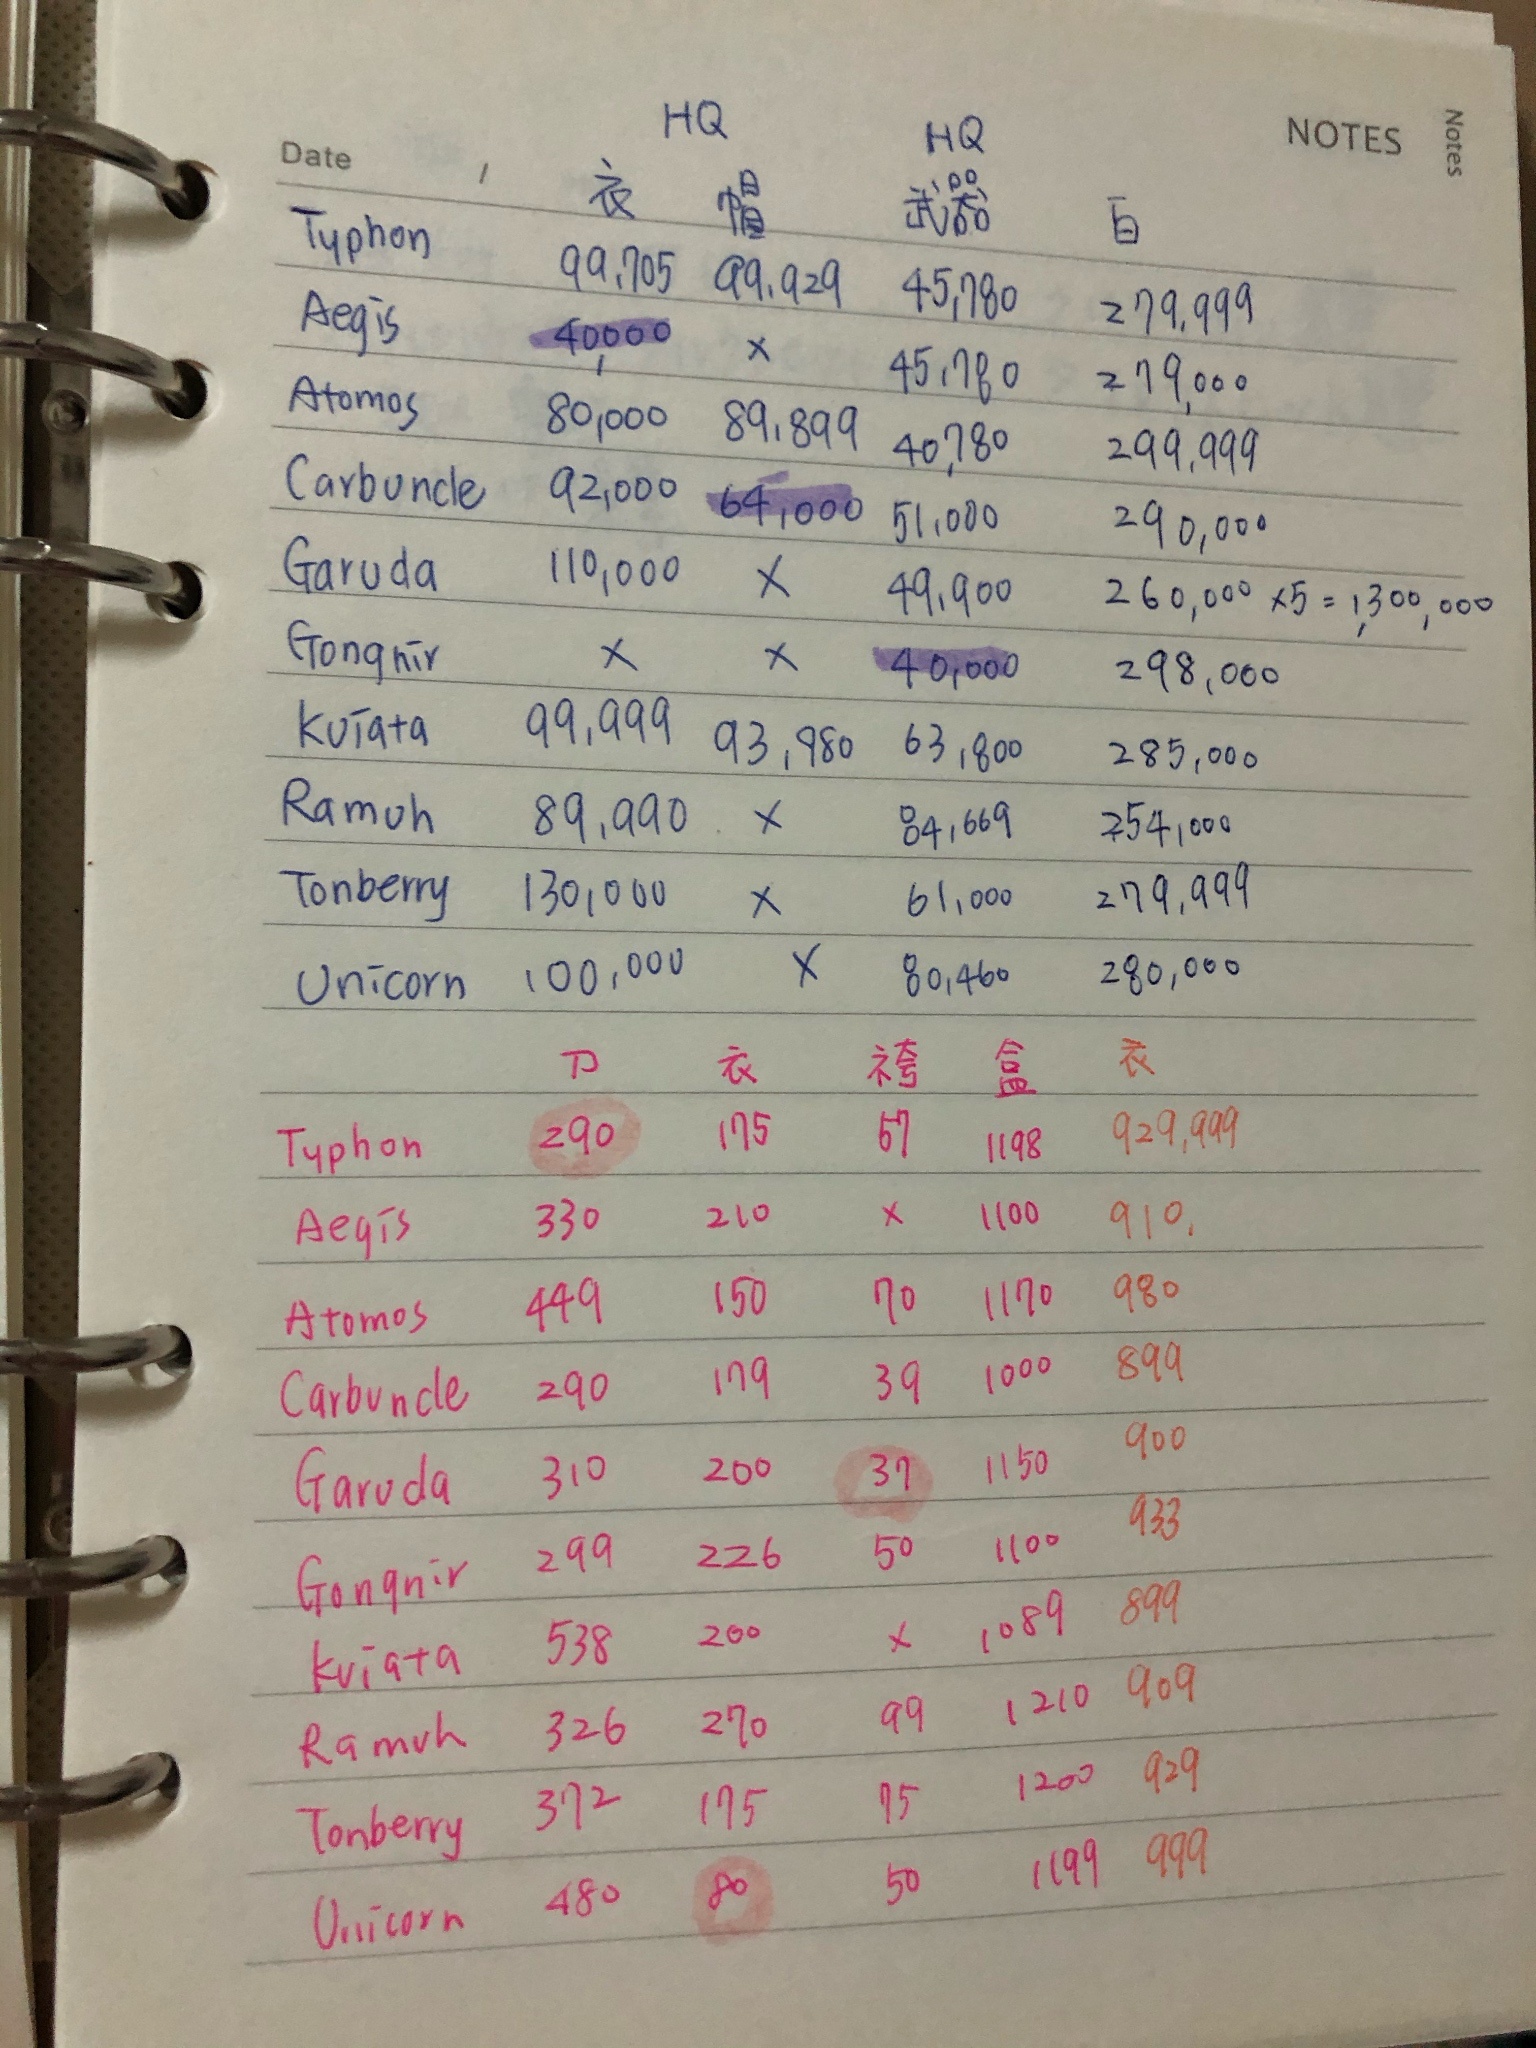 HQ HQ NOTES Notes
Date /
衣 帽 武器 白
Typhon 99,705 99,929 45,780 279,999
Aegis 40,000 × 45,780 279,000
Atomos 80,000 89,899 40,780 299,999
Carbuncle 92,000 64,000 51,000 290,000
Garuda 110,000 × 49,900 260,000 ×5 = 1,300,000
Gongnir × × 40,000 298,000
Kuiata 99,999 93,980 63,800 285,000
Ramuh 89,990 × 84,669 254,000
Tonberry 130,000 × 61,000 279,999
Unicorn 100,000 × 80,460 280,000
刀 衣 袴 盒 衣
Typhon 290 175 57 1198 929,999
Aegis 330 210 × 1100 910,
Atomos 449 150 70 1170 980
Carbuncle 290 179 39 1000 899
Garuda 310 200 37 1150 900
Gongnir 299 226 50 1100 933
Kuiata 538 200 × 1089 899
Ramuh 326 270 99 1210 909
Tonberry 372 175 75 1200 929
Unicorn 480 80 50 1199 999